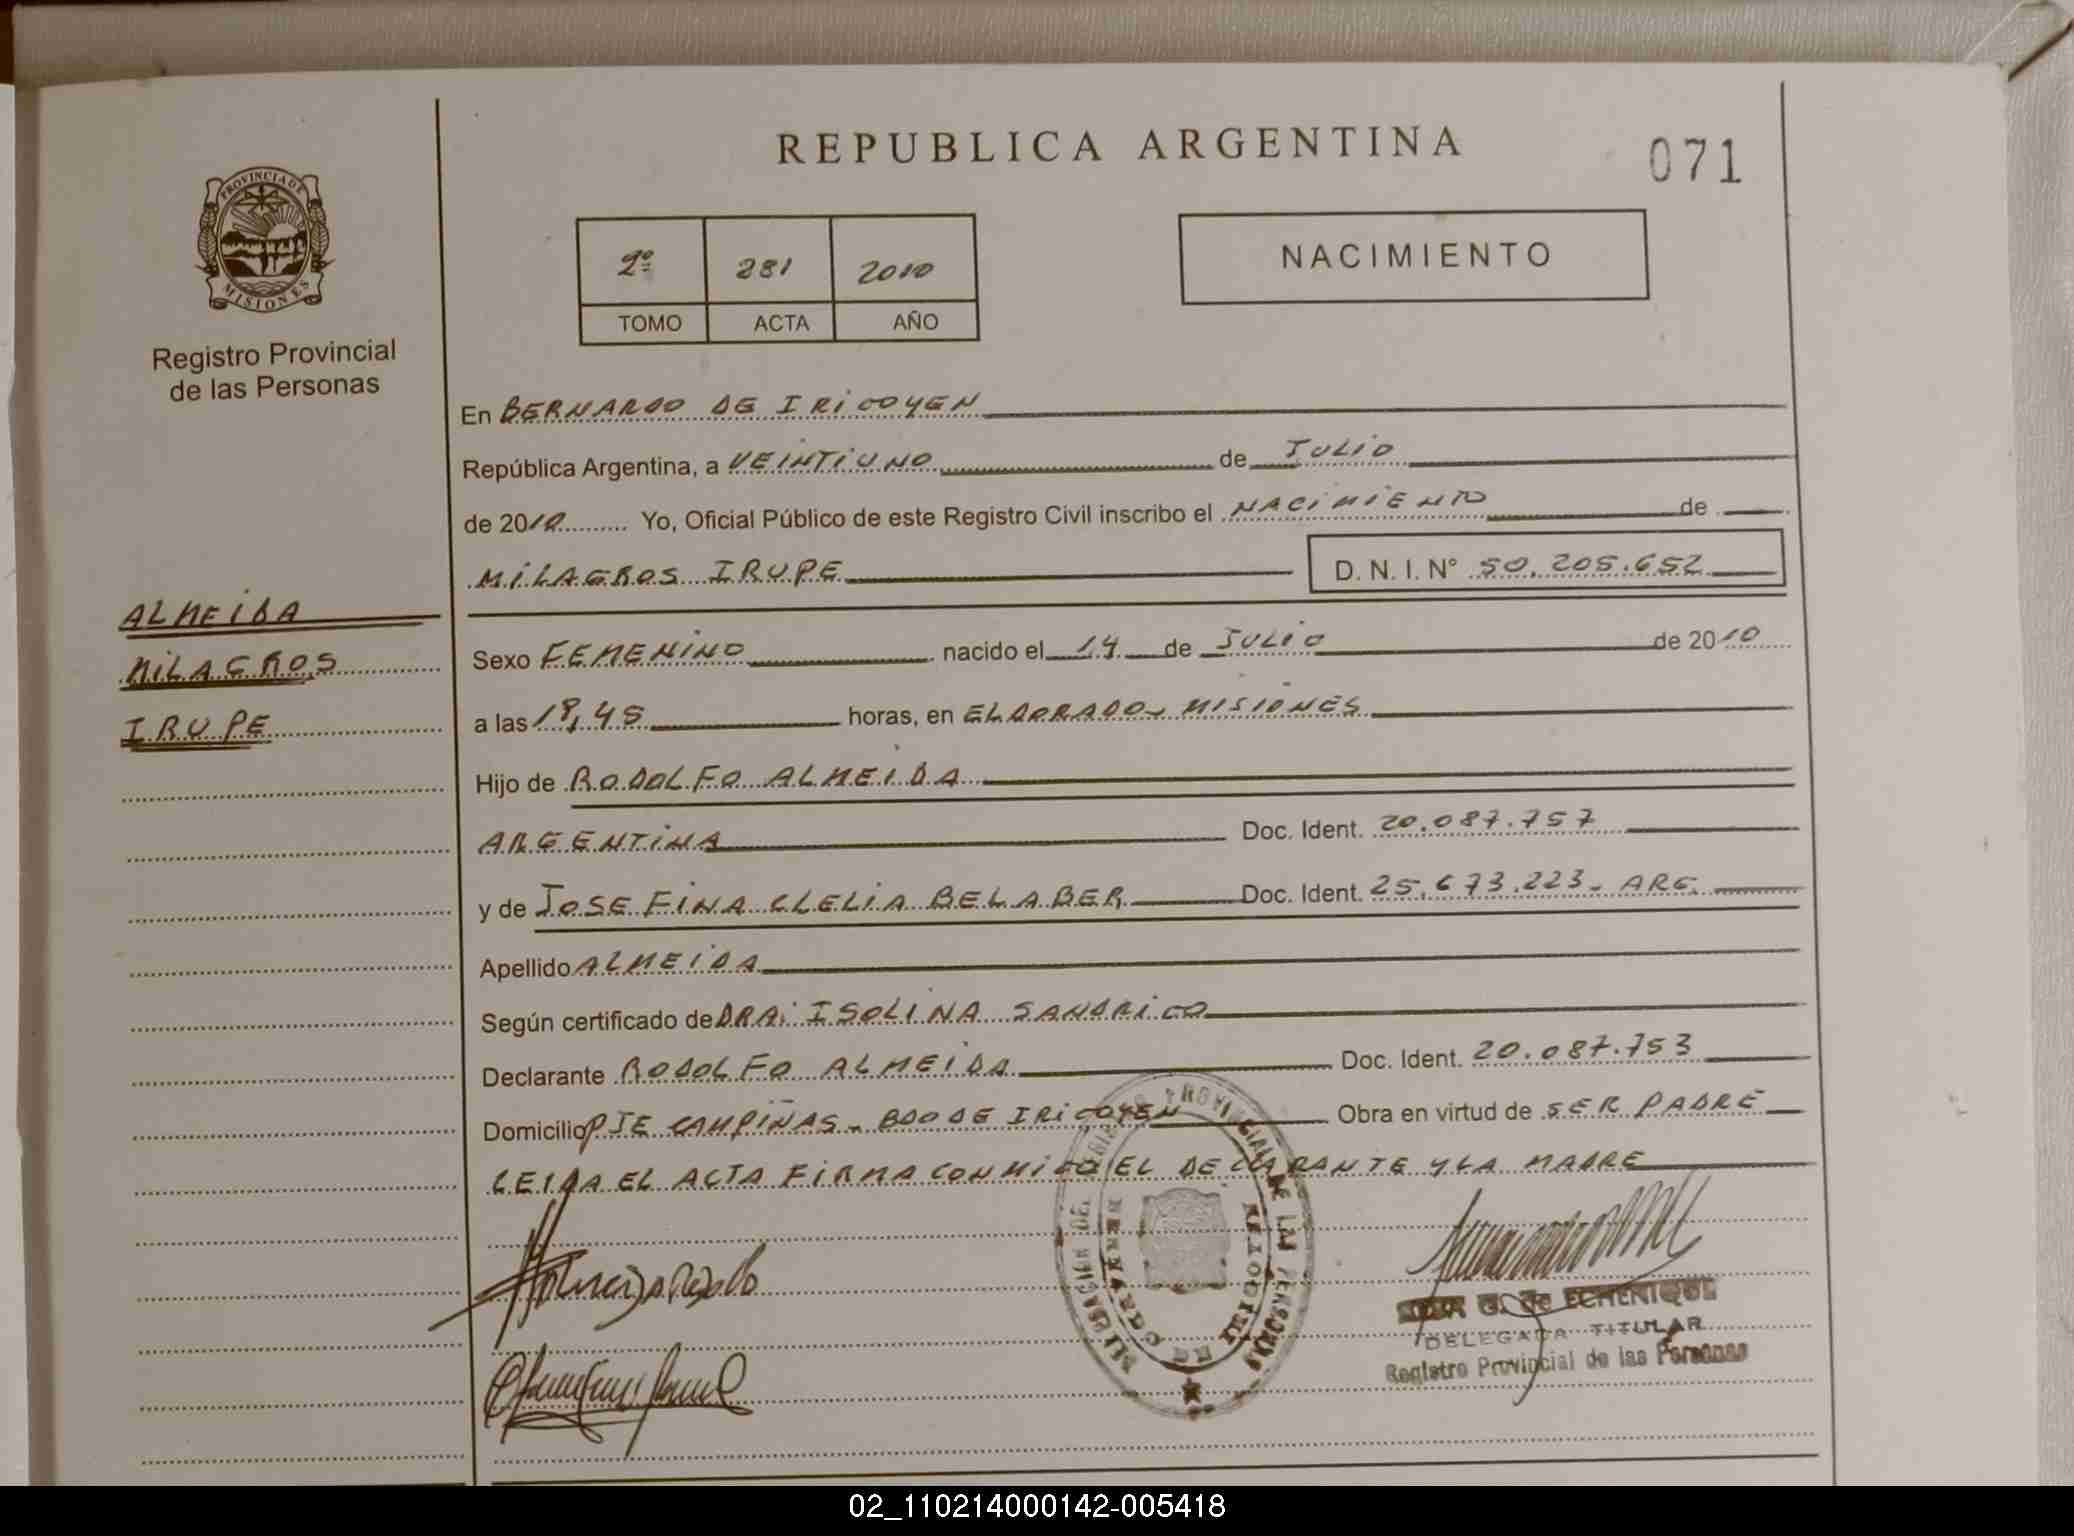 REPUBLICA ARGENTINA
071
PROVINCIA DE
MISIONES
Registro Provincial
de las Personas
2º 281 2010
TOMO ACTA AÑO
NACIMIENTO
En BERNARDO DE IRICOYEN
República Argentina, a VEINTIUNO de JULIO
de 2010 Yo, Oficial Público de este Registro Civil inscribo el NACIMIENTO de
MILAGROS IRUPE D. N. I. N° 50.205.652
ALMEIDA
MILAGROS
IRUPE
Sexo FEMENINO nacido el 14 de JULIO de 2010
a las 18,45 horas, en ELDORADO - MISIONES
Hijo de RODOLFO ALMEIDA
ARGENTINA Doc. Ident. 20.087.757
y de JOSEFINA CLELIA BELABER Doc. Ident. 25.673.223 - ARG.
Apellido ALMEIDA
Según certificado de DRA: ISOLINA SANDRICO
Declarante RODOLFO ALMEIDA Doc. Ident. 20.087.753
Domicilio PJE CAMPIÑAS - BDO DE IRICOYEN Obra en virtud de SER PADRE
LEIDA EL ACTA FIRMA CONMIGO EL DECLARANTE Y LA MADRE
G. de ECHENIQUE
DELEGADA TITULAR
Registro Provincial de las Personas
02_110214000142-005418